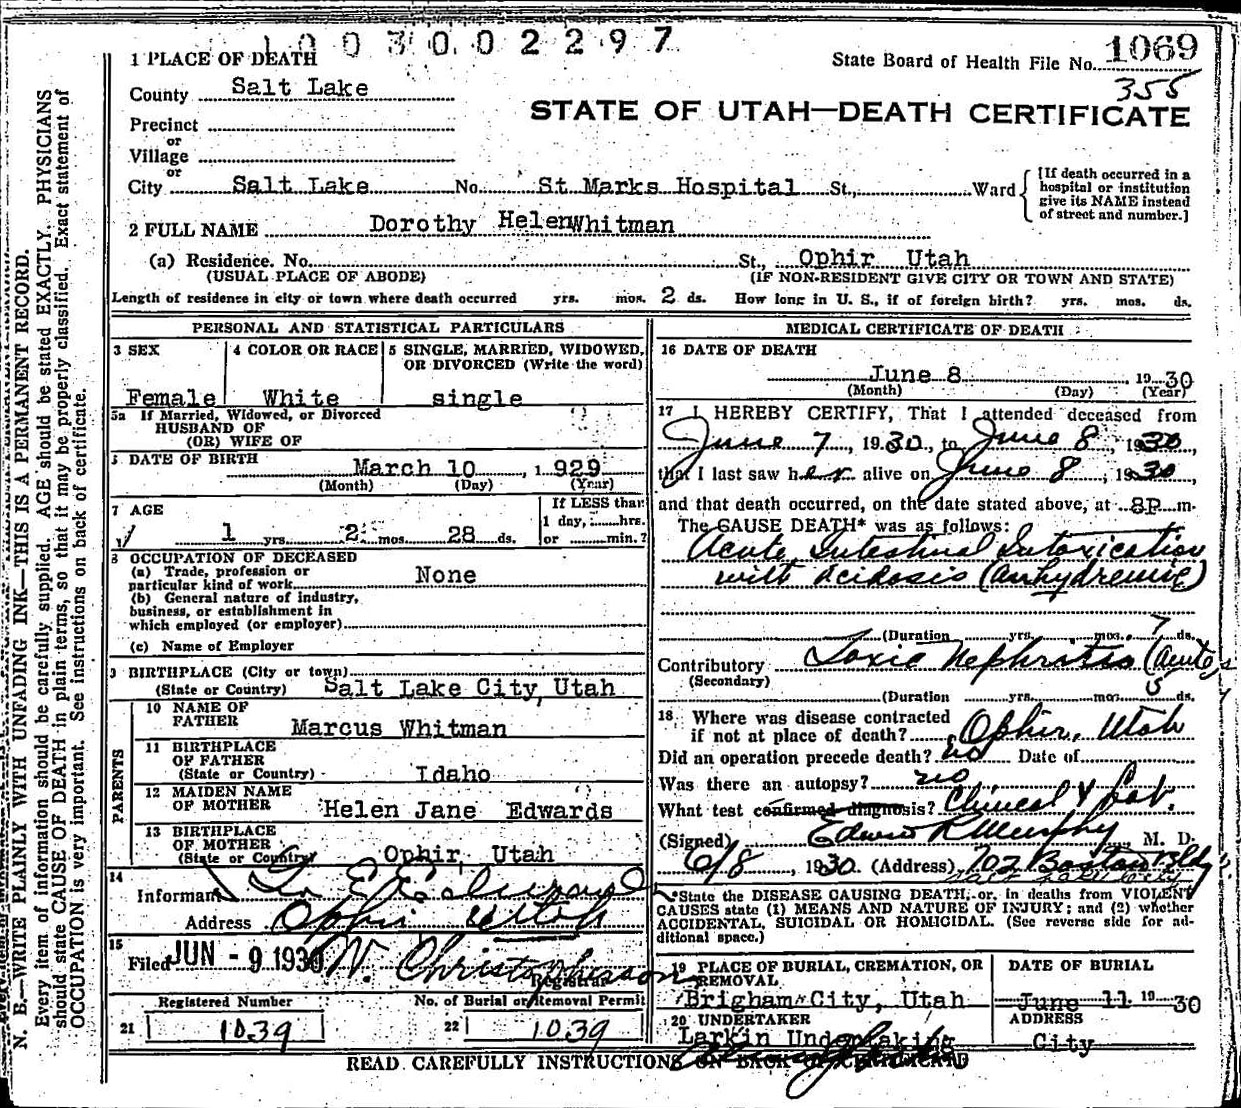 1003000 2297
1 PLACE OF DEATH
State Board of Health File No. 1069
355
County Salt Lake
STATE OF UTAH—DEATH CERTIFICATE
Precinct
or
Village
or
City Salt Lake No. St Marks Hospital St., Ward
[If death occurred in a
hospital or institution
give its NAME instead
of street and number.]
2 FULL NAME Dorothy Helen Whitman
(a) Residence. No. St., Ophir Utah
(USUAL PLACE OF ABODE) (IF NON-RESIDENT GIVE CITY OR TOWN AND STATE)
Length of residence in city or town where death occurred yrs. mos. 2 ds. How long in U. S., if of foreign birth? yrs. mos. ds.
PERSONAL AND STATISTICAL PARTICULARS
3 SEX 4 COLOR OR RACE 5 SINGLE, MARRIED, WIDOWED,
OR DIVORCED (Write the word)
Female White single
5a If Married, Widowed, or Divorced
HUSBAND OF
(OR) WIFE OF
DATE OF BIRTH
March 10, 1929
(Month) (Day) (Year)
7 AGE If LESS than
1 day, hrs.
1 yrs. 2 mos. 28 ds. or min.?
8 OCCUPATION OF DECEASED
(a) Trade, profession or
particular kind of work None
(b) General nature of industry,
business, or establishment in
which employed (or employer)
(c) Name of Employer
9 BIRTHPLACE (City or town)
(State or Country) Salt Lake City, Utah
PARENTS
10 NAME OF
FATHER Marcus Whitman
11 BIRTHPLACE
OF FATHER
(State or Country) Idaho
12 MAIDEN NAME
OF MOTHER Helen Jane Edwards
13 BIRTHPLACE
OF MOTHER
(State or Country) Ophir Utah
14
Informant
Address Ophir Utah
15
Filed JUN - 9 1930 W. Christophersson
Registrar
Registered Number No. of Burial or Removal Permit
21 1039 22 1039
MEDICAL CERTIFICATE OF DEATH
16 DATE OF DEATH
June 8 1930
(Month) (Day) (Year)
17 I HEREBY CERTIFY, That I attended deceased from
June 7, 1930, to June 8, 1930
that I last saw her alive on June 8, 1930,
and that death occurred, on the date stated above, at 8P m.
The CAUSE DEATH* was as follows:
Acute Intestinal Intoxication
with Acidosis (Anhydremic)
(Duration yrs. mos. 7 ds.
Contributory Toxic Nephritis (Acute)
(Secondary)
(Duration yrs. mos. 5 ds.
18. Where was disease contracted
if not at place of death? Ophir, Utah
Did an operation precede death? no Date of
Was there an autopsy? no
What test confirmed diagnosis? Clinical & Lab.
(Signed) Edwin R Murphy, M. D.
6/8, 1930 (Address) 702 Boston Bldg
Salt Lake City
*State the DISEASE CAUSING DEATH, or, in deaths from VIOLENT
CAUSES state (1) MEANS AND NATURE OF INJURY; and (2) whether
ACCIDENTAL, SUICIDAL OR HOMICIDAL. (See reverse side for ad-
ditional space.)
19 PLACE OF BURIAL, CREMATION, OR
REMOVAL DATE OF BURIAL
Brigham City, Utah June 11 1930
20 UNDERTAKER ADDRESS
Larkin Undertaking City
READ CAREFULLY INSTRUCTIONS ON BACK OF CERTIFICATE
N. B.—WRITE PLAINLY WITH UNFADING INK—THIS IS A PERMANENT RECORD.
Every item of information should be carefully supplied. AGE should be stated EXACTLY. PHYSICIANS
should state CAUSE OF DEATH in plain terms, so that it may be properly classified. Exact statement of
OCCUPATION is very important. See instructions on back of certificate.